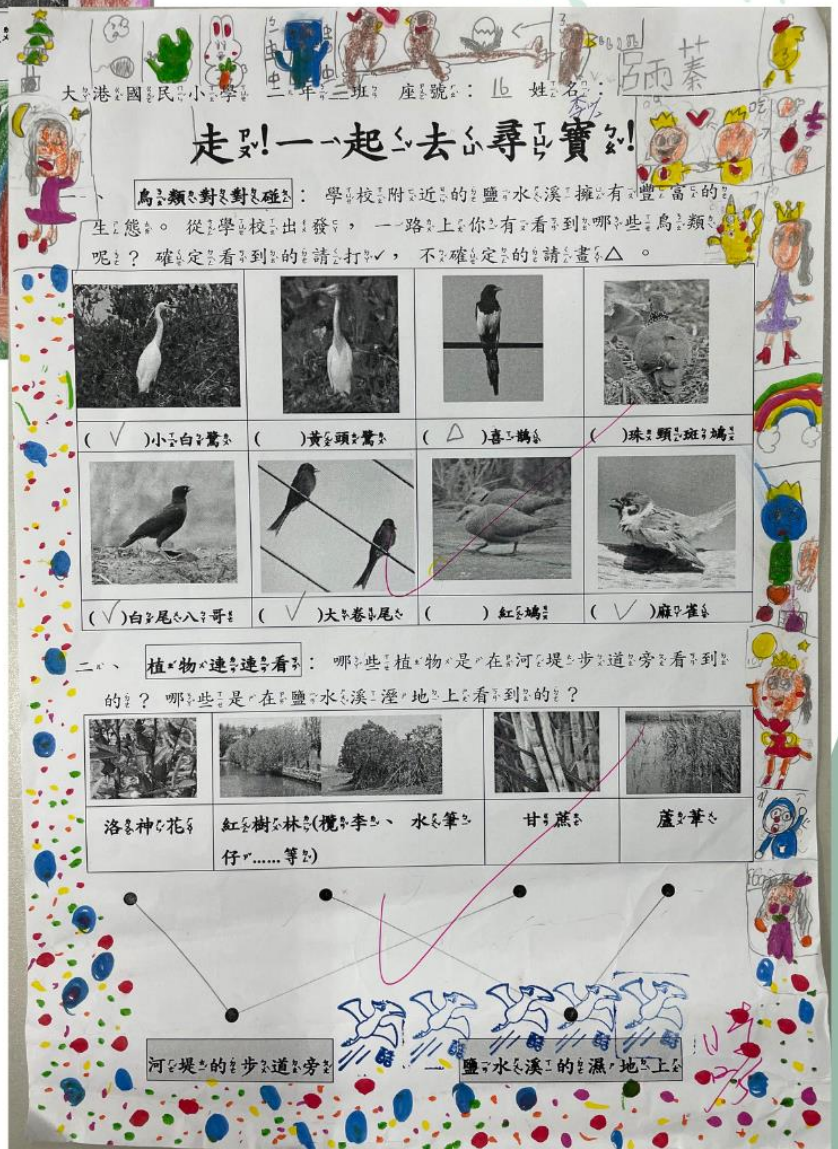 大港國民小學 二年三班 座號：16 姓名：呂雨蓁
走！一起去尋寶！
一、鳥類對對碰：學校附近的鹽水溪擁有豐富的
生態。從學校出發，一路上你有看到哪些鳥類
呢？確定看到的請打✓，不確定的請畫△。
( ✓ )小白鷺 ( )黃頭鷺 ( △ )喜鵲 ( )珠頸斑鳩
( ✓ )白尾八哥 ( ✓ )大卷尾 ( )紅鳩 ( ✓ )麻雀
二、植物連連看：哪些植物是在河堤步道旁看到
的？哪些是在鹽水溪溼地上看到的？
洛神花 紅樹林(欖李、水筆仔……等) 甘蔗 蘆葦
河堤的步道旁 鹽水溪的濕地上